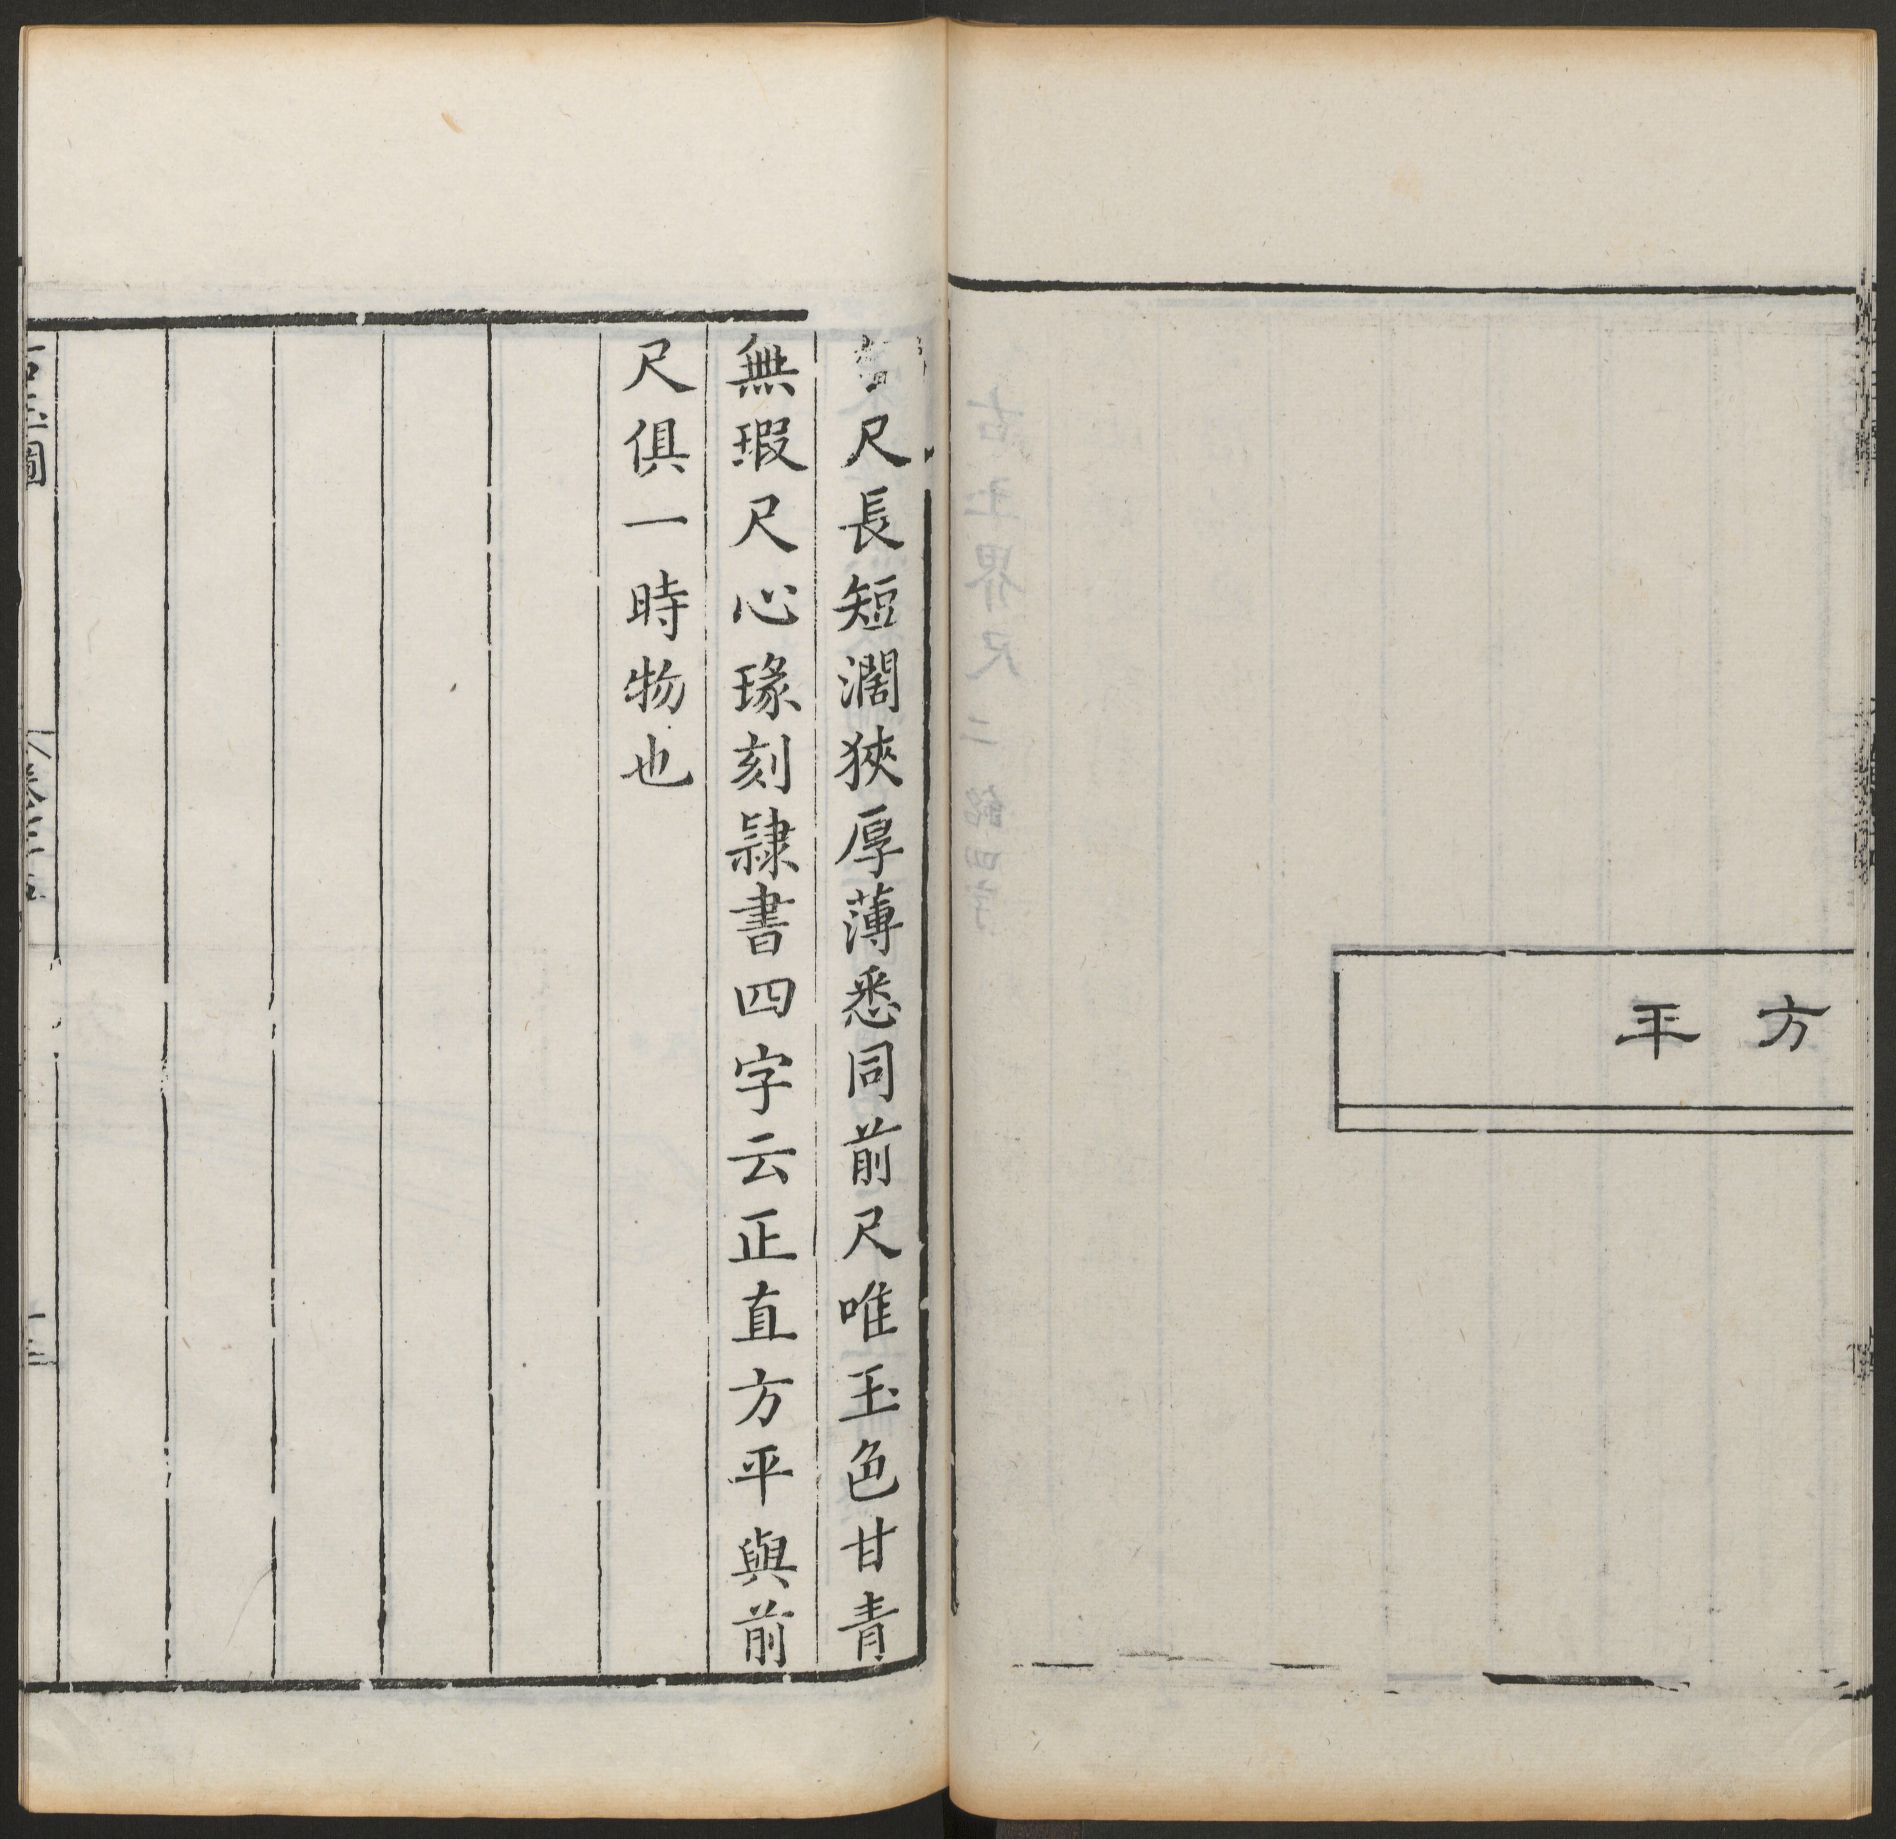 方平
尺長短濶狹厚薄悉同前尺唯玉色甘青
無瑕尺心瑑刻隷書四字云正直方平與前
尺俱一時物也